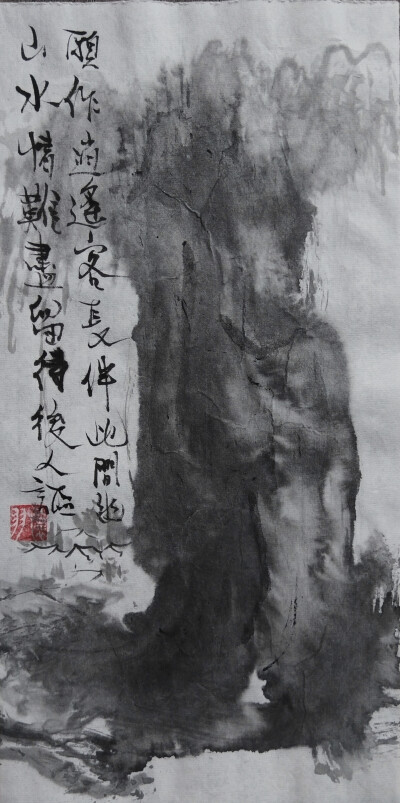 願作逍遙客長伴此間遊
山水情難盡留待後人謳